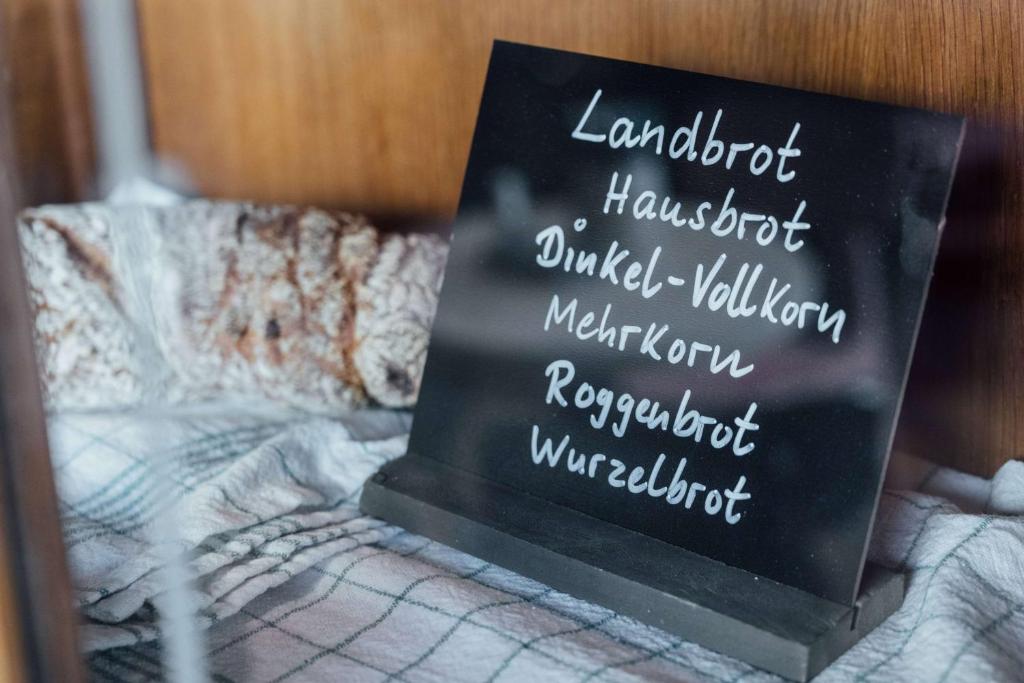 Landbrot
Hausbrot
Dinkel-Vollkorn
Mehrkorn
Roggenbrot
Wurzelbrot